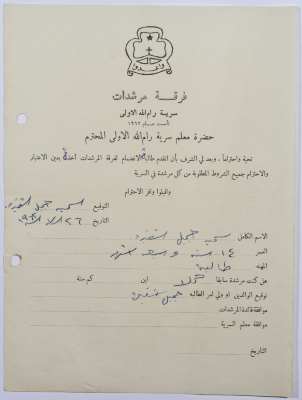 وأعدوا
فرقة مرشدات
سرية رام الله الاولى
تأسست عام ١٩٦٢
حضرة معلم سرية رام الله الاولى المحترم
تحية واحتراماً ، وبعد لي الشرف بأن اتقدم طالبة الانضمام لفرقة المرشدات آخذة بعين الاعتبار
والاحترام جميع الشروط المطلوبة من كل مرشدة في السرية
واقبلوا وافر الاحترام
التوقيع سميرة جميل
التاريخ ٢٦
الاسم الكامل سميرة جميل
العمر ١٤ سنة و شهر
المهنة طالبة
هل كنت مرشدة سابقا كلا اين كم سنة
توقيع الوالدين او ولي امر الطالبة جميل
موافقة قائدة المرشدات
موافقة معلم السرية
التاريخ